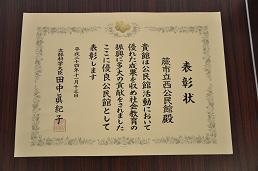 表彰状
蕨市立西公民館殿
貴館は公民館活動において
優れた成果を収め社会教育の
振興に多大の貢献をされました
ここに優良公民館として
表彰します
平成二十四年十一月十三日
文部科学大臣
田中眞紀子